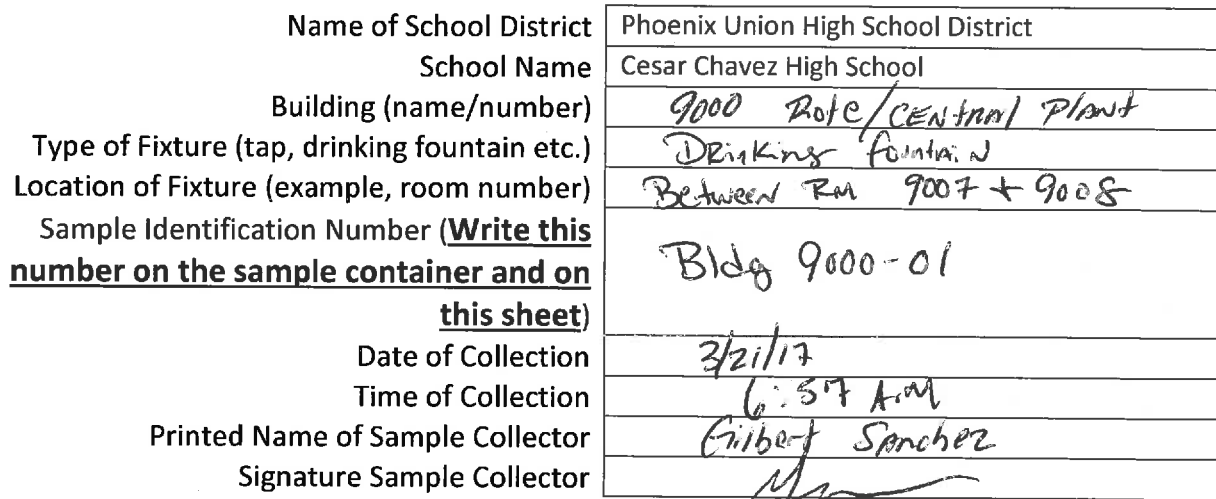 Name of School District Phoenix Union High School District
School Name Cesar Chavez High School
Building (name/number) 9000 RotC/CENtRAl PlANt
Type of Fixture (tap, drinking fountain etc.) DRinKing fountAiN
Location of Fixture (example, room number) Between RM 9007 + 9008
Sample Identification Number (Write this
number on the sample container and on
this sheet) Bldg 9000-01
Date of Collection 3/21/17
Time of Collection 6:57 A.M
Printed Name of Sample Collector Gilbert SAnchez
Signature Sample Collector